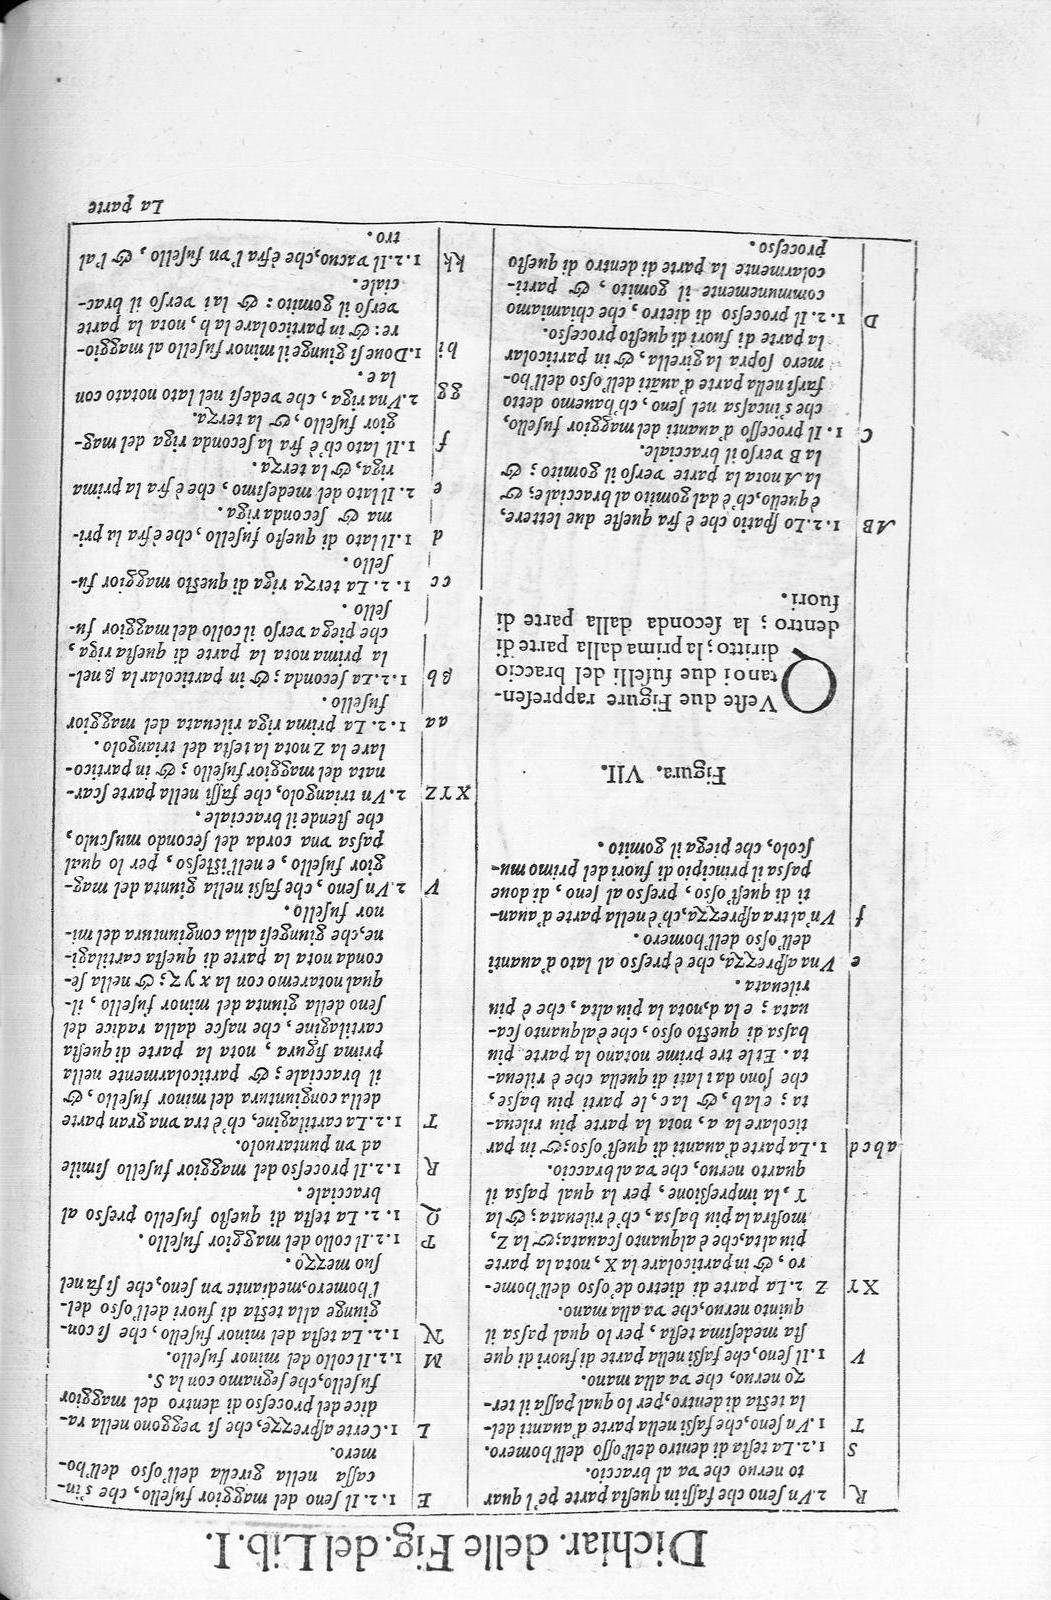 Dichiar. delle Fig. del Lib. I.
R 2. Vn seno che fassi in questa parte pe'l quar
to neruo che va al braccio.
S 1.2. La testa di dentro dell'osso dell'homero.
T 1. Vn seno, che fassi nella parte d'auanti del-
la testa di dentro, per lo qual passa il ter-
zo neruo, che va alla mano.
V 1. Il seno, che fassi nella parte di fuori di que
sta medesima testa, per lo qual passa il
quinto neruo, che va alla mano.
XY Z 2. La parte di dietro de osso dell'home-
ro, & in particolare la X, nota la parte
piu alta, che è alquanto scauata; & la Z,
mostra la piu bassa, ch'è rileuata; & la
Y, la impressione, per la qual passa il
quarto neruo, che va al braccio.
abcd 1. La parte d'auanti di quest'osso; & in par
ticolare la a, nota la parte piu rileua-
ta; e la b, & la c, le parti piu basse,
che sono da i lati di quella che è rileua-
ta. Et le tre prime notano la parte piu
bassa di questo osso, che è alquanto sca-
uata; e la d, nota la piu alta, che è piu
rileuata.
e Vna asprezza, che è presso al lato d'auanti
dell'osso dell'homero.
f Vn'altra asprezza, ch'è nella parte d'auan-
ti di quest'osso, presso al seno, di doue
passa il principio di fuori del primo mu-
scolo, che piega il gomito.
Figura. VII.
QVeste due Figure rappresen-
tano i due fusselli del braccio
diritto; la prima dalla parte di
dentro; la seconda dalla parte di
fuori.
AB 1.2. Lo spatio che è fra queste due lettere,
è quello, ch'è dal gomito al bracciale; &
la A nota la parte verso il gomito; &
la B verso il bracciale.
C 1. Il processo d'auanti del maggior fusello,
che s'incassa nel seno, ch'hauemo detto
farsi nella parte d'auāti dell'osso dell'ho-
mero sopra la girella, & in particolar
la parte di fuori di questo processo.
D 1.2. Il processo di dietro, che chiamiamo
communemente il gomito, & parti-
colarmente la parte di dentro di questo
processo.
E 1.2. Il seno del maggior fusello, che s'in-
cassa nella girella dell'osso dell'ho-
mero.
L 1. Certe asprezze, che si veggono nella ra-
dice del processo di dentro del maggior
fusello, che segnamo con la S.
M 1.2. Il collo del minor fusello.
N 1.2. La testa del minor fusello, che si con-
giunge alla testa di fuori dell'osso del-
l'homero, mediante vn seno, che si fa nel
suo mezzo.
P 1.2. Il collo del maggior fusello.
Q 1.2. La testa di questo fusello presso al
bracciale.
R 1.2. Il processo del maggior fusello simile
ad vn puntaruolo.
T 1.2. La cartilagine, ch'è tra vna gran parte
della congiuntura del minor fusello, &
il bracciale; & particolarmente nella
prima figura, nota la parte di questa
cartilagine, che nasce dalla radice del
seno della giunta del minor fusello, il-
qual notaremo con la x y z; & nella se-
conda nota la parte di questa cartilagi-
ne, che giungesi alla congiuntura del mi-
nor fusello.
V 2. Vn seno, che fassi nella giunta del mag-
gior fusello, e nell'istesso, per lo qual
passa vna corda del secondo musculo,
che stende il bracciale.
XYZ 2. Vn triangolo, che fassi nella parte scar-
nata del maggior fusello; & in partico-
lare la Z nota la testa del triangolo.
aa 1.2. La prima riga rileuata del maggior
fusello.
gb 1.2. La seconda; & in particolar la g nel-
la prima nota la parte di questa riga,
che piega verso il collo del maggior fu-
sello.
cc 1. 2. La terza riga di questo maggior fu-
sello.
d 1. Il lato di questo fusello, che è fra la pri-
ma & seconda riga.
e 2. Il lato del medesimo, che è fra la prima
riga, & la terza.
f 1. Il lato ch'è fra la seconda riga del mag-
gior fusello, & la terza.
gg 2. Vna riga, che vedesi nel lato notato con
la e.
hi 1. Doue si giunge il minor fusello al maggio-
re: & in particolare la h, nota la parte
verso il gomito: & la i verso il brac-
ciale.
kk 1.2. Il vacuo, che è fra l'vn fusello, & l'al
tro.
La parte